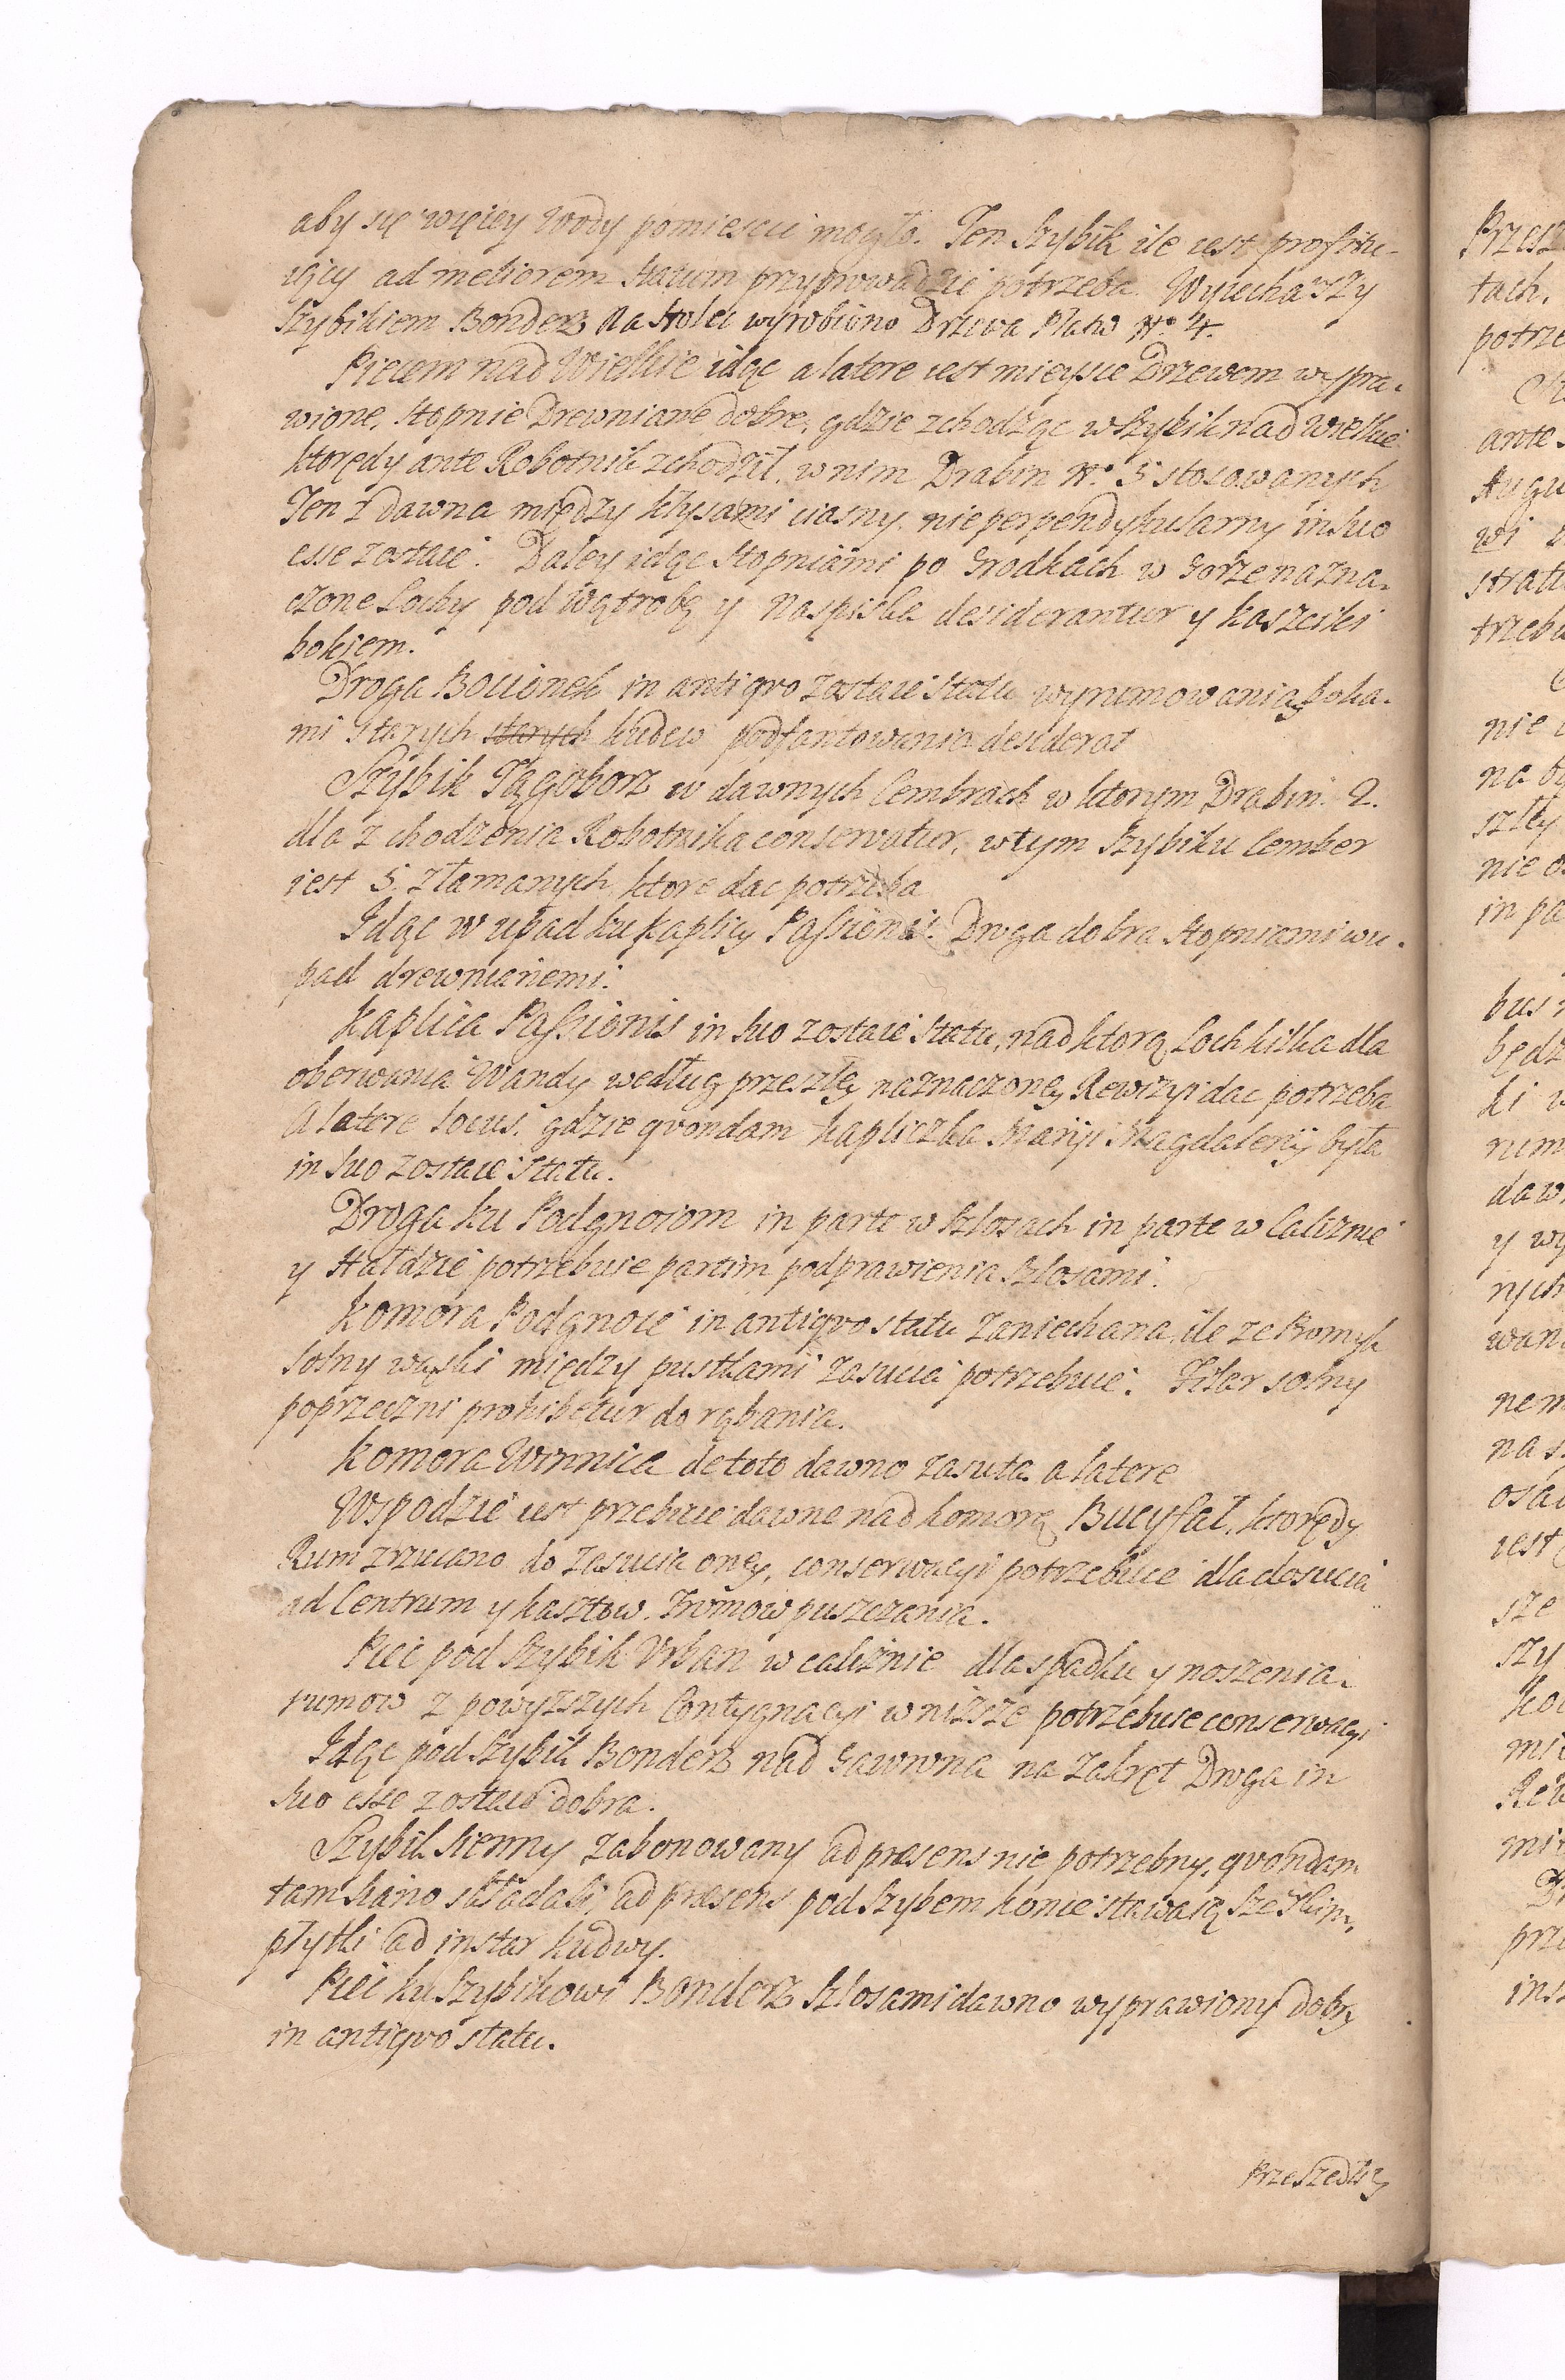 aby się więcey Wody pomiescic mogło. Ten Szybik ile iest profitu-
iący ad meliorem statum przyprowadzić potrzeba. Wyiechawszy
Szybikiem Bonderz na Stolcu wyrobiono Drzewa Płatw No 4.
Piecem nad Wielkie idąc a latere iest mieysce Drzewem wypra-
wione, stopnie Drewniane dobre, gdzie zchodząc w Szybik nad Wielkie
ktorędy ante Robotnik zchodził, w nim Drabin No 5 stosowanych
Ten z dawna między kłysami ciasny, nie perpendykularny in suo
esse zostaie. Daley idąc Stopniami po Grodkach w Gorze nazna-
czone Lochy pod Wątrobę y Naspiska desiderantur y kaszciki
bokiem.
Droga Bocionek in antiqvo zostaie Statu wyrumowania boka-
mi starych starych kudew podfantowania desiderat
Szybik Tągoborz w dawnych Cembrach w ktorym Drabin 2.
dla zchodzenia Robotnika conservatur, w tym Szybiku Cember
iest 5. złamanych ktore dac potrzeba
Idąc w upad ku Kaplicy Passionis Droga dobra Stopniami wu-
pad drewnianemi.
Kaplica Passionis in suo zostaie Statu, nad ktorą Loch kilka dla
oberwania Wandy według przeszłey naznaczoney Rewizyi dac potrzeba
A latere Locus, gdzie qvondam Kapliczka Maryi Magdaleny była
in suo zostaie Statu.
Droga ku Podgnoiom in parte w Szlosach in parte w Caliznie
y Hałdzie potrzebuie partim podprawienia Szlosami.
Komora Podgnoie in antiqvo statu Zaniechana, ile ze Pomyk
solny wąski między pustkami Zasucia potrzebuie. Filar solny
poprzeczni prohibetur do rąbania.
Komora Winnica de toto dawno zasuta a latere
W spodzie iest przebicie dawne nad komorę Bucyfał, ktorędy
Rum zrzucano do zasucia oney, conserwacyi potrzebuie dla dosucia
ad Centrum y kasztow. Rumow puszczania.
Piec pod Szybik Urban w caliznie dla spadku y noszenia
rumow z powyzszych Contygnacyi w nizsze potrzebuie conserwacyi
Idąc pod Szybik Bonderz nad Gawrona na Zakręt Droga in
suo esse zostaie dobra.
Szybik Sienny zabonowany ad præsens nie potrzebny, qvondam
tam siano składali, ad præsens pod Szybem konie stawaią
płytki ad instar kudwy.
Piec ku Szybikowi Bonderz Szlosami dawno wyprawiony dobry
in antiqvo statu.
Przeszedłszy